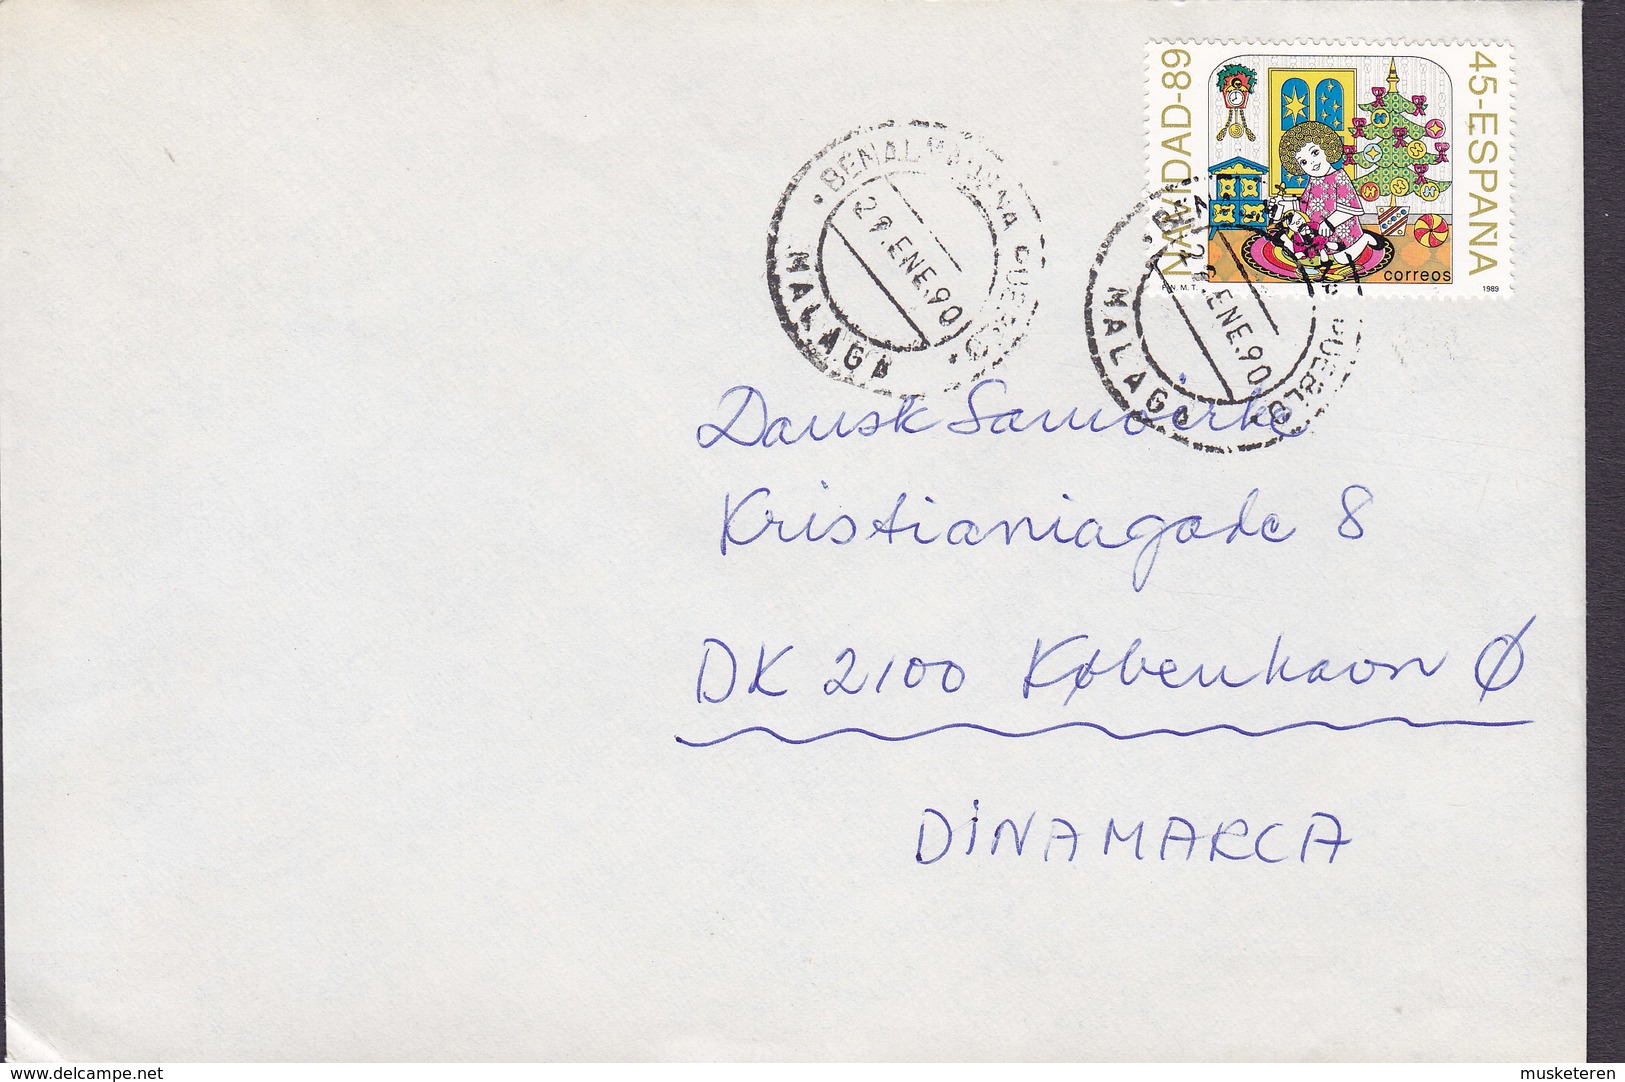 NAVIDAD-89
45-ESPAÑA
correos
F.N.M.T.
1989
BENALMADENA PUEBLO
29.ENE.90
MALAGA
BENALMADENA PUEBLO
29.ENE.90
MALAGA
Dansk Samvirke
Kristianiagade 8
DK 2100 København Ø
DINAMARCA
www.delcampe.net
musketeren